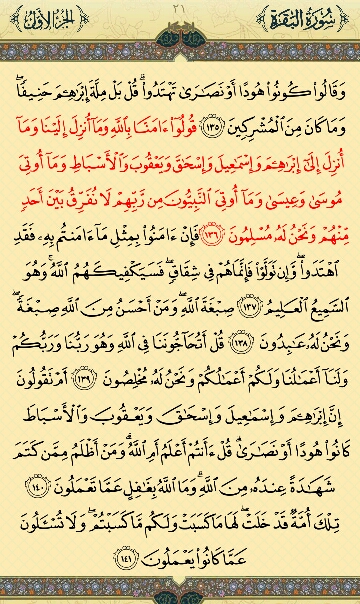 سُورَةُ الْبَقَرَة ٢١ الجُزْءُ الأَوَّل
وَقَالُوا۟ كُونُوا۟ هُودًا أَوْ نَصَـٰرَىٰ تَهْتَدُوا۟ ۗ قُلْ بَلْ مِلَّةَ إِبْرَٰهِـۧمَ حَنِيفًا ۖ
وَمَا كَانَ مِنَ ٱلْمُشْرِكِينَ ﴿١٣٥﴾ قُولُوٓا۟ ءَامَنَّا بِٱللَّهِ وَمَآ أُنزِلَ إِلَيْنَا وَمَآ
أُنزِلَ إِلَىٰٓ إِبْرَٰهِـۧمَ وَإِسْمَـٰعِيلَ وَإِسْحَـٰقَ وَيَعْقُوبَ وَٱلْأَسْبَاطِ وَمَآ أُوتِىَ
مُوسَىٰ وَعِيسَىٰ وَمَآ أُوتِىَ ٱلنَّبِيُّونَ مِن رَّبِّهِمْ لَا نُفَرِّقُ بَيْنَ أَحَدٍ
مِّنْهُمْ وَنَحْنُ لَهُۥ مُسْلِمُونَ ﴿١٣٦﴾ فَإِنْ ءَامَنُوا۟ بِمِثْلِ مَآ ءَامَنتُم بِهِۦ فَقَدِ
ٱهْتَدَوا۟ ۖ وَّإِن تَوَلَّوْا۟ فَإِنَّمَا هُمْ فِى شِقَاقٍ ۖ فَسَيَكْفِيكَهُمُ ٱللَّهُ ۚ وَهُوَ
ٱلسَّمِيعُ ٱلْعَلِيمُ ﴿١٣٧﴾ صِبْغَةَ ٱللَّهِ ۖ وَمَنْ أَحْسَنُ مِنَ ٱللَّهِ صِبْغَةً ۖ
وَنَحْنُ لَهُۥ عَـٰبِدُونَ ﴿١٣٨﴾ قُلْ أَتُحَآجُّونَنَا فِى ٱللَّهِ وَهُوَ رَبُّنَا وَرَبُّكُمْ
وَلَنَآ أَعْمَـٰلُنَا وَلَكُمْ أَعْمَـٰلُكُمْ وَنَحْنُ لَهُۥ مُخْلِصُونَ ﴿١٣٩﴾ أَمْ تَقُولُونَ
إِنَّ إِبْرَٰهِـۧمَ وَإِسْمَـٰعِيلَ وَإِسْحَـٰقَ وَيَعْقُوبَ وَٱلْأَسْبَاطَ
كَانُوا۟ هُودًا أَوْ نَصَـٰرَىٰ ۗ قُلْ ءَأَنتُمْ أَعْلَمُ أَمِ ٱللَّهُ ۗ وَمَنْ أَظْلَمُ مِمَّن كَتَمَ
شَهَـٰدَةً عِندَهُۥ مِنَ ٱللَّهِ ۗ وَمَا ٱللَّهُ بِغَـٰفِلٍ عَمَّا تَعْمَلُونَ ﴿١٤٠﴾
تِلْكَ أُمَّةٌ قَدْ خَلَتْ ۖ لَهَا مَا كَسَبَتْ وَلَكُم مَّا كَسَبْتُمْ ۖ وَلَا تُسْـَٔلُونَ
عَمَّا كَانُوا۟ يَعْمَلُونَ ﴿١٤١﴾